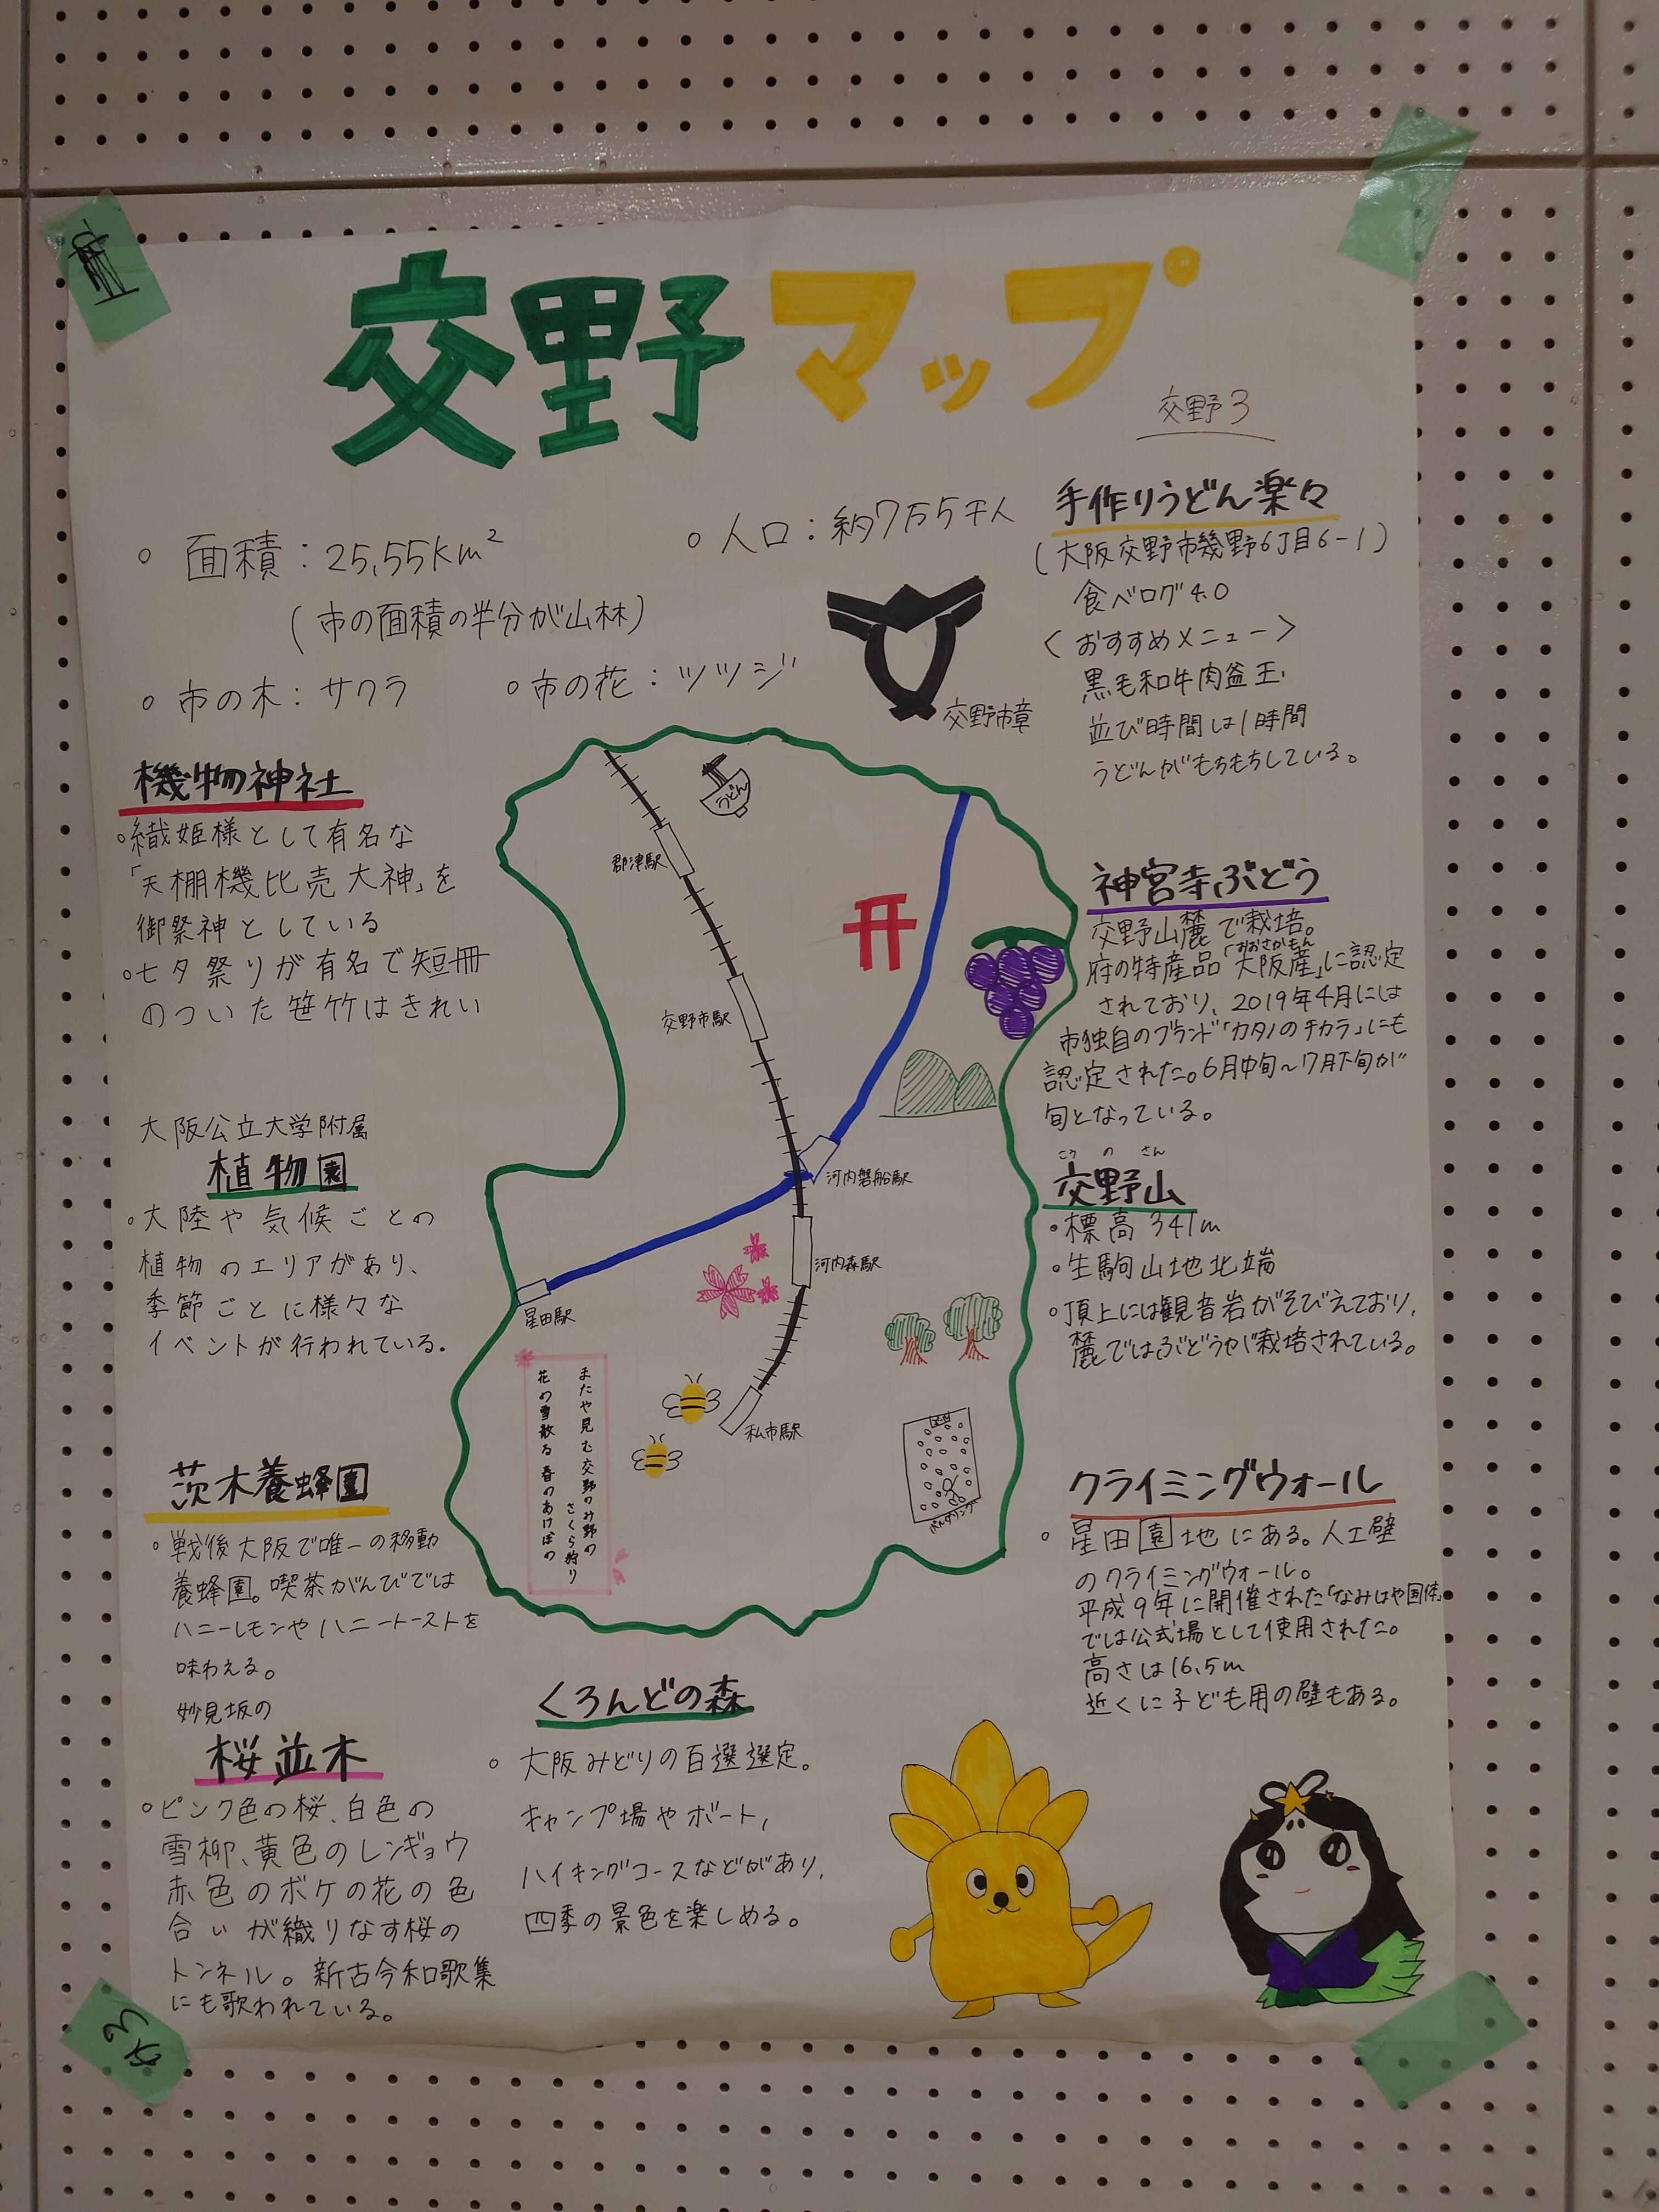 交野マップ
交野3
面積：25.55km²
(市の面積の半分が山林)
人口：約7万5千人
市の木：サクラ
市の花：ツツジ
交野市章
手作りうどん楽々
(大阪交野市幾野6丁目6-1)
食べログ4.0
<おすすめメニュー>
黒毛和牛肉釜玉
並び時間は1時間
うどんがもちもちしている。
機物神社
織姫様として有名な
「天棚機比売大神」を
御祭神としている
七夕祭りが有名で短冊
のついた笹竹はきれい
大阪公立大学附属
植物園
大陸や気候ごとの
植物のエリアがあり、
季節ごとに様々な
イベントが行われている。
茨木養蜂園
戦後大阪で唯一の移動
養蜂園。喫茶がんびでは
ハニーレモンやハニートーストを
味わえる。
妙見坂の
桜並木
ピンク色の桜、白色の
雪柳、黄色のレンギョウ
赤色のボケの花の色
合いが織りなす桜の
トンネル。新古今和歌集
にも歌われている。
うどん
郡津駅
交野市駅
河内磐船駅
河内森駅
星田駅
私市駅
またや見む交野のみ野の
さくら狩り
花の雪散る春のあけぼの
ボルダリング
神宮寺ぶどう
交野山麓で栽培。
おおさかもん
府の特産品「大阪産」に認定
されており、2019年4月には
市独自のブランド「カタノのチカラ」にも
認定された。6月中旬～7月下旬が
旬となっている。
こうのさん
交野山
標高341m
生駒山地北端
頂上には観音岩がそびえており、
麓ではぶどうが栽培されている。
クライミングウォール
星田園地にある。人工壁
のクライミングウォール。
平成9年に開催された「なみはや国体」
では公式場として使用された。
高さは16.5m
近くに子ども用の壁もある。
くろんどの森
大阪みどりの百選選定。
キャンプ場やボート,
ハイキングコースなどがあり、
四季の景色を楽しめる。